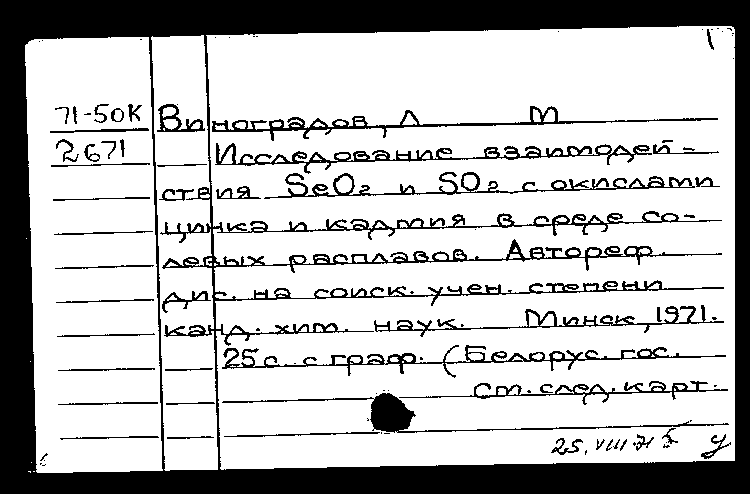 71-50К Виноградов, Л М
2671 Исследование взаимодей-
ствия SeO₂ и SO₂ с окислами
цинка и кадмия в среде со-
левых расплавов. Автореф.
дис. на соиск. учен. степени
канд. хим. наук. Минск, 1971.
25 с. с граф. (Белорус. гос.
См. след. карт.
25.VIII 71